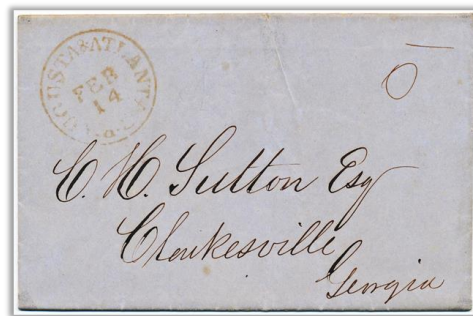 AUGUSTA & ATLANTA
FEB
14
C. H. Sutton Esq
Clarkesville
Georgia